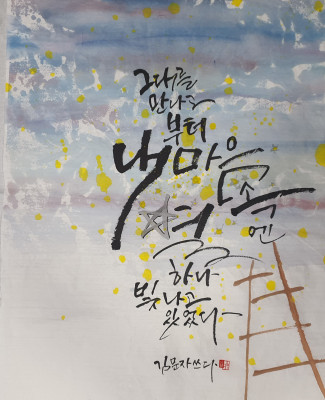 그대를
만나고
부터
내 마음
속엔
별
하나
빛나고
있었다
김문자쓰다